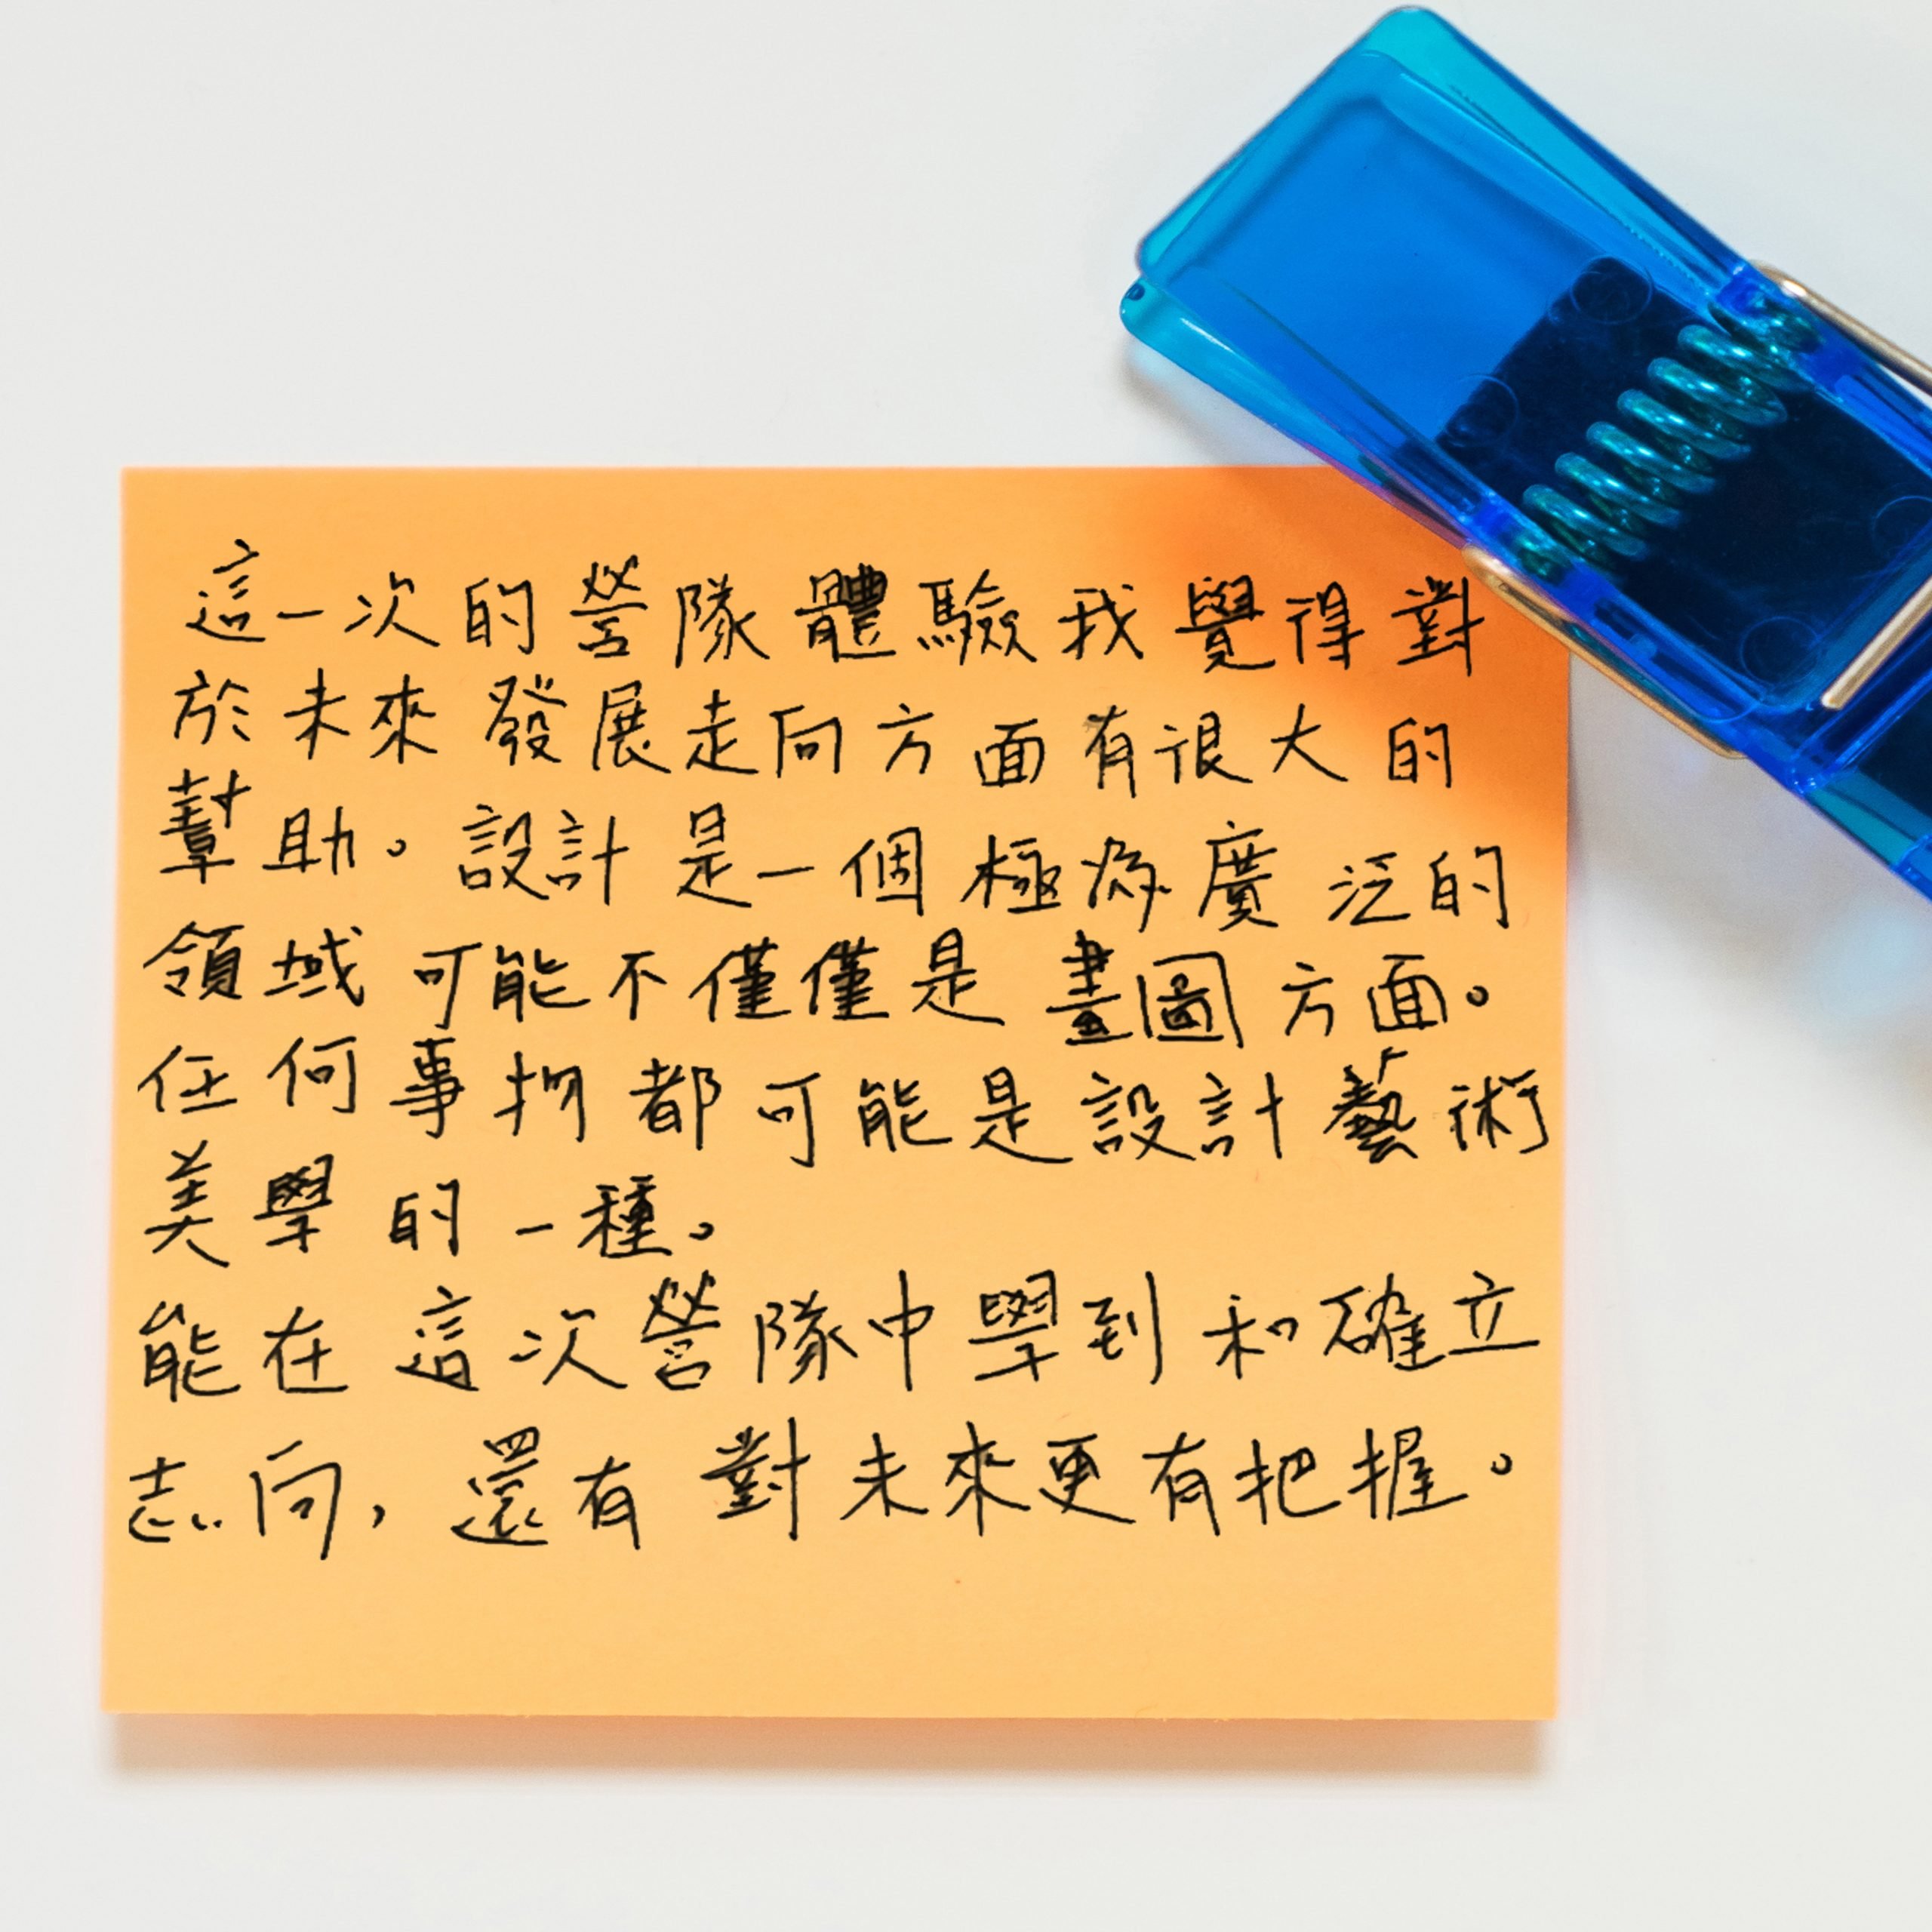 這一次的營隊體驗我覺得對
於未來發展走向方面有很大的
幫助。設計是一個極為廣泛的
領域可能不僅僅是畫圖方面。
任何事物都可能是設計藝術
美學的一種。
能在這次營隊中學到和確立
志向，還有對未來更有把握。